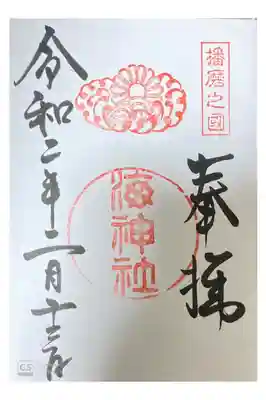 播磨之國
奉拝
海神社
令和二年二月十二日